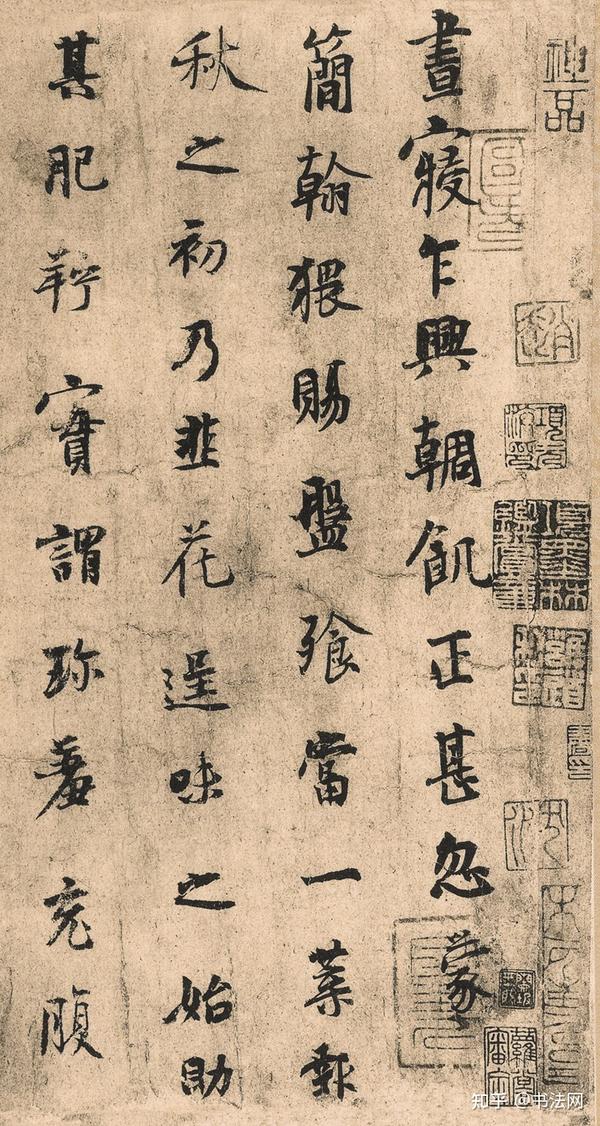 神品
晝寢乍興輖飢正甚忽蒙
簡翰猥賜盤飧當一葉報
秋之初乃韭花逞味之始助
其肥羜實謂珍羞充腹
知乎 @书法网